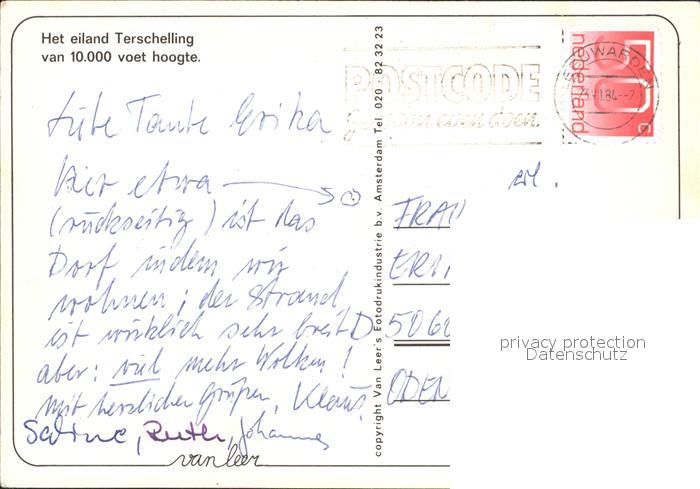 Het eiland Terschelling
van 10.000 voet hoogte.
Liebe Tante Erika
Hier etwa
(rückseitig) ist das
Dorf indem wir
wohnen; der Strand
ist wirklich sehr breit
aber: viel mehr Wolken!
mit herzlichen Grüßen, Klaus,
Sabine, Ruth, Johannes
van leer
copyright Van Leer's Fotodrukindustrie b.v. Amsterdam Tel. 020 - 82 32 23
POSTCODE
gewoon even doen.
LEEUWARDEN
nederland
c
FRAU
ERI
D 5060
ODEN
privacy protection
Datenschutz